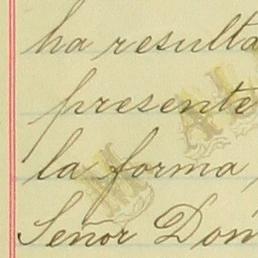 ha resulta
presente
la forma,
Señor Don